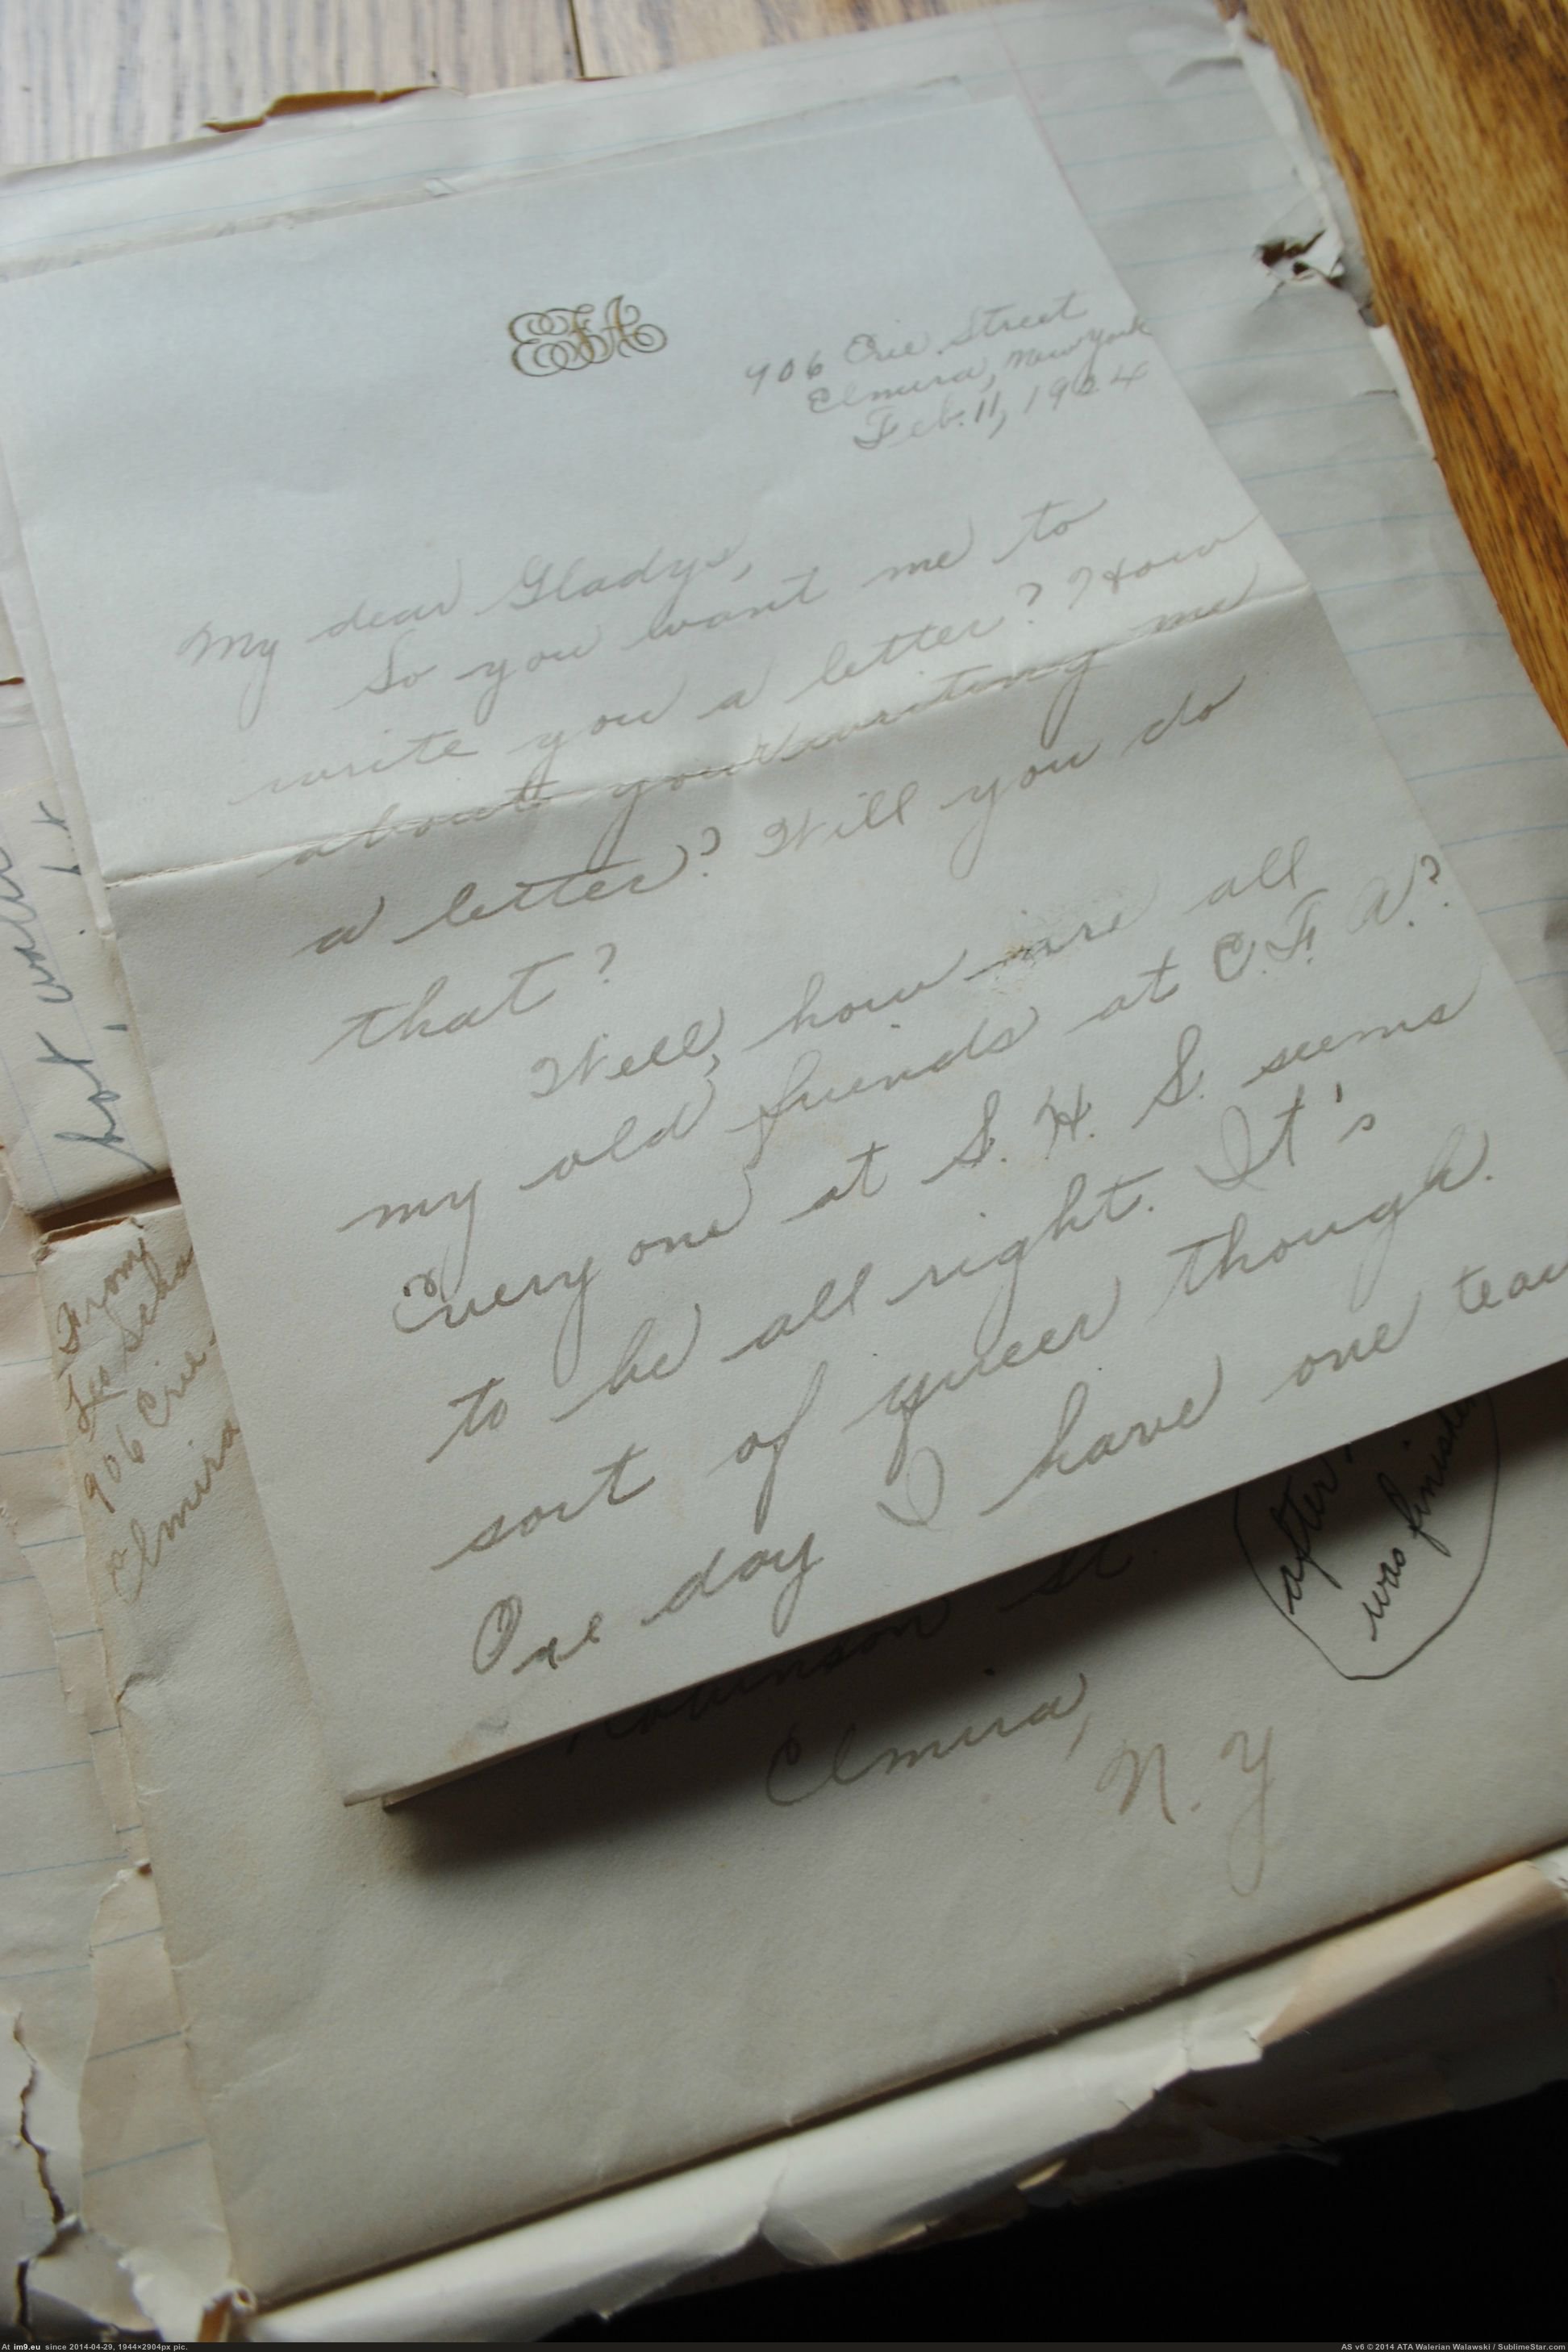 EFA
906 Erie Street
Elmira, New York
Feb. 11, 1924
My dear Gladys,
So you want me to
write you a letter? How
about your writing me
a letter? Will you do
that?
Well, how are all
my old friends at E. F. A.?
Everyone at S. H. S. seems
to be all right. It's
sort of queer though.
One day I have one
hot water
From
Leo
906 Erie
Elmira
after
was finished
Robinson St.
Elmira,
N. Y
At im9.eu since 2014-04-29, 1944×2904px pic.
AS v6 © 2014 ATA Walerian Walawski / SublimeStar.com